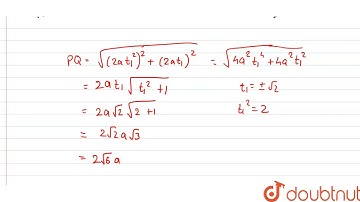 PQ = √((2at₁²)² + (2at₁)²) = √(4a²t₁⁴ + 4a²t₁²)
= 2at₁√(t₁² + 1) t₁ = ±√2
= 2a√2√(2 + 1) t₁² = 2
= 2√2a√3
= 2√6a
doubtnut